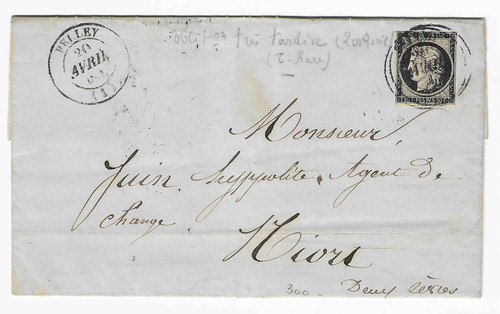 BELLEY
20
AVRIL
(1)
très tardive
(T. Rare)
20 c POSTES 20 c
Monsieur,
Juin Hyppolite Agent de
change
Niort
300
Deux Sèvres